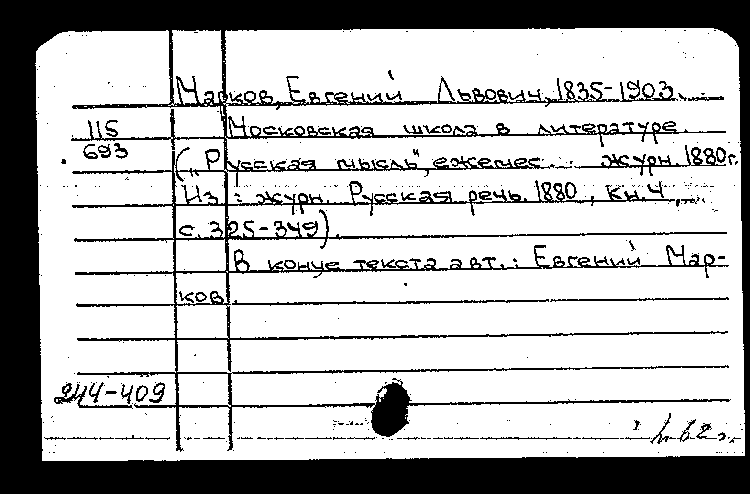 Марков, Евгений Львович, 1835-1903.
115 Московская школа в литературе.
693 („Русская мысль", ежемес. журн. 1880г.
Из: журн. Русская речь. 1880, Кн. 4,
с. 325-349).
В конце текста авт.: Евгений Мар-
ков.
244-409